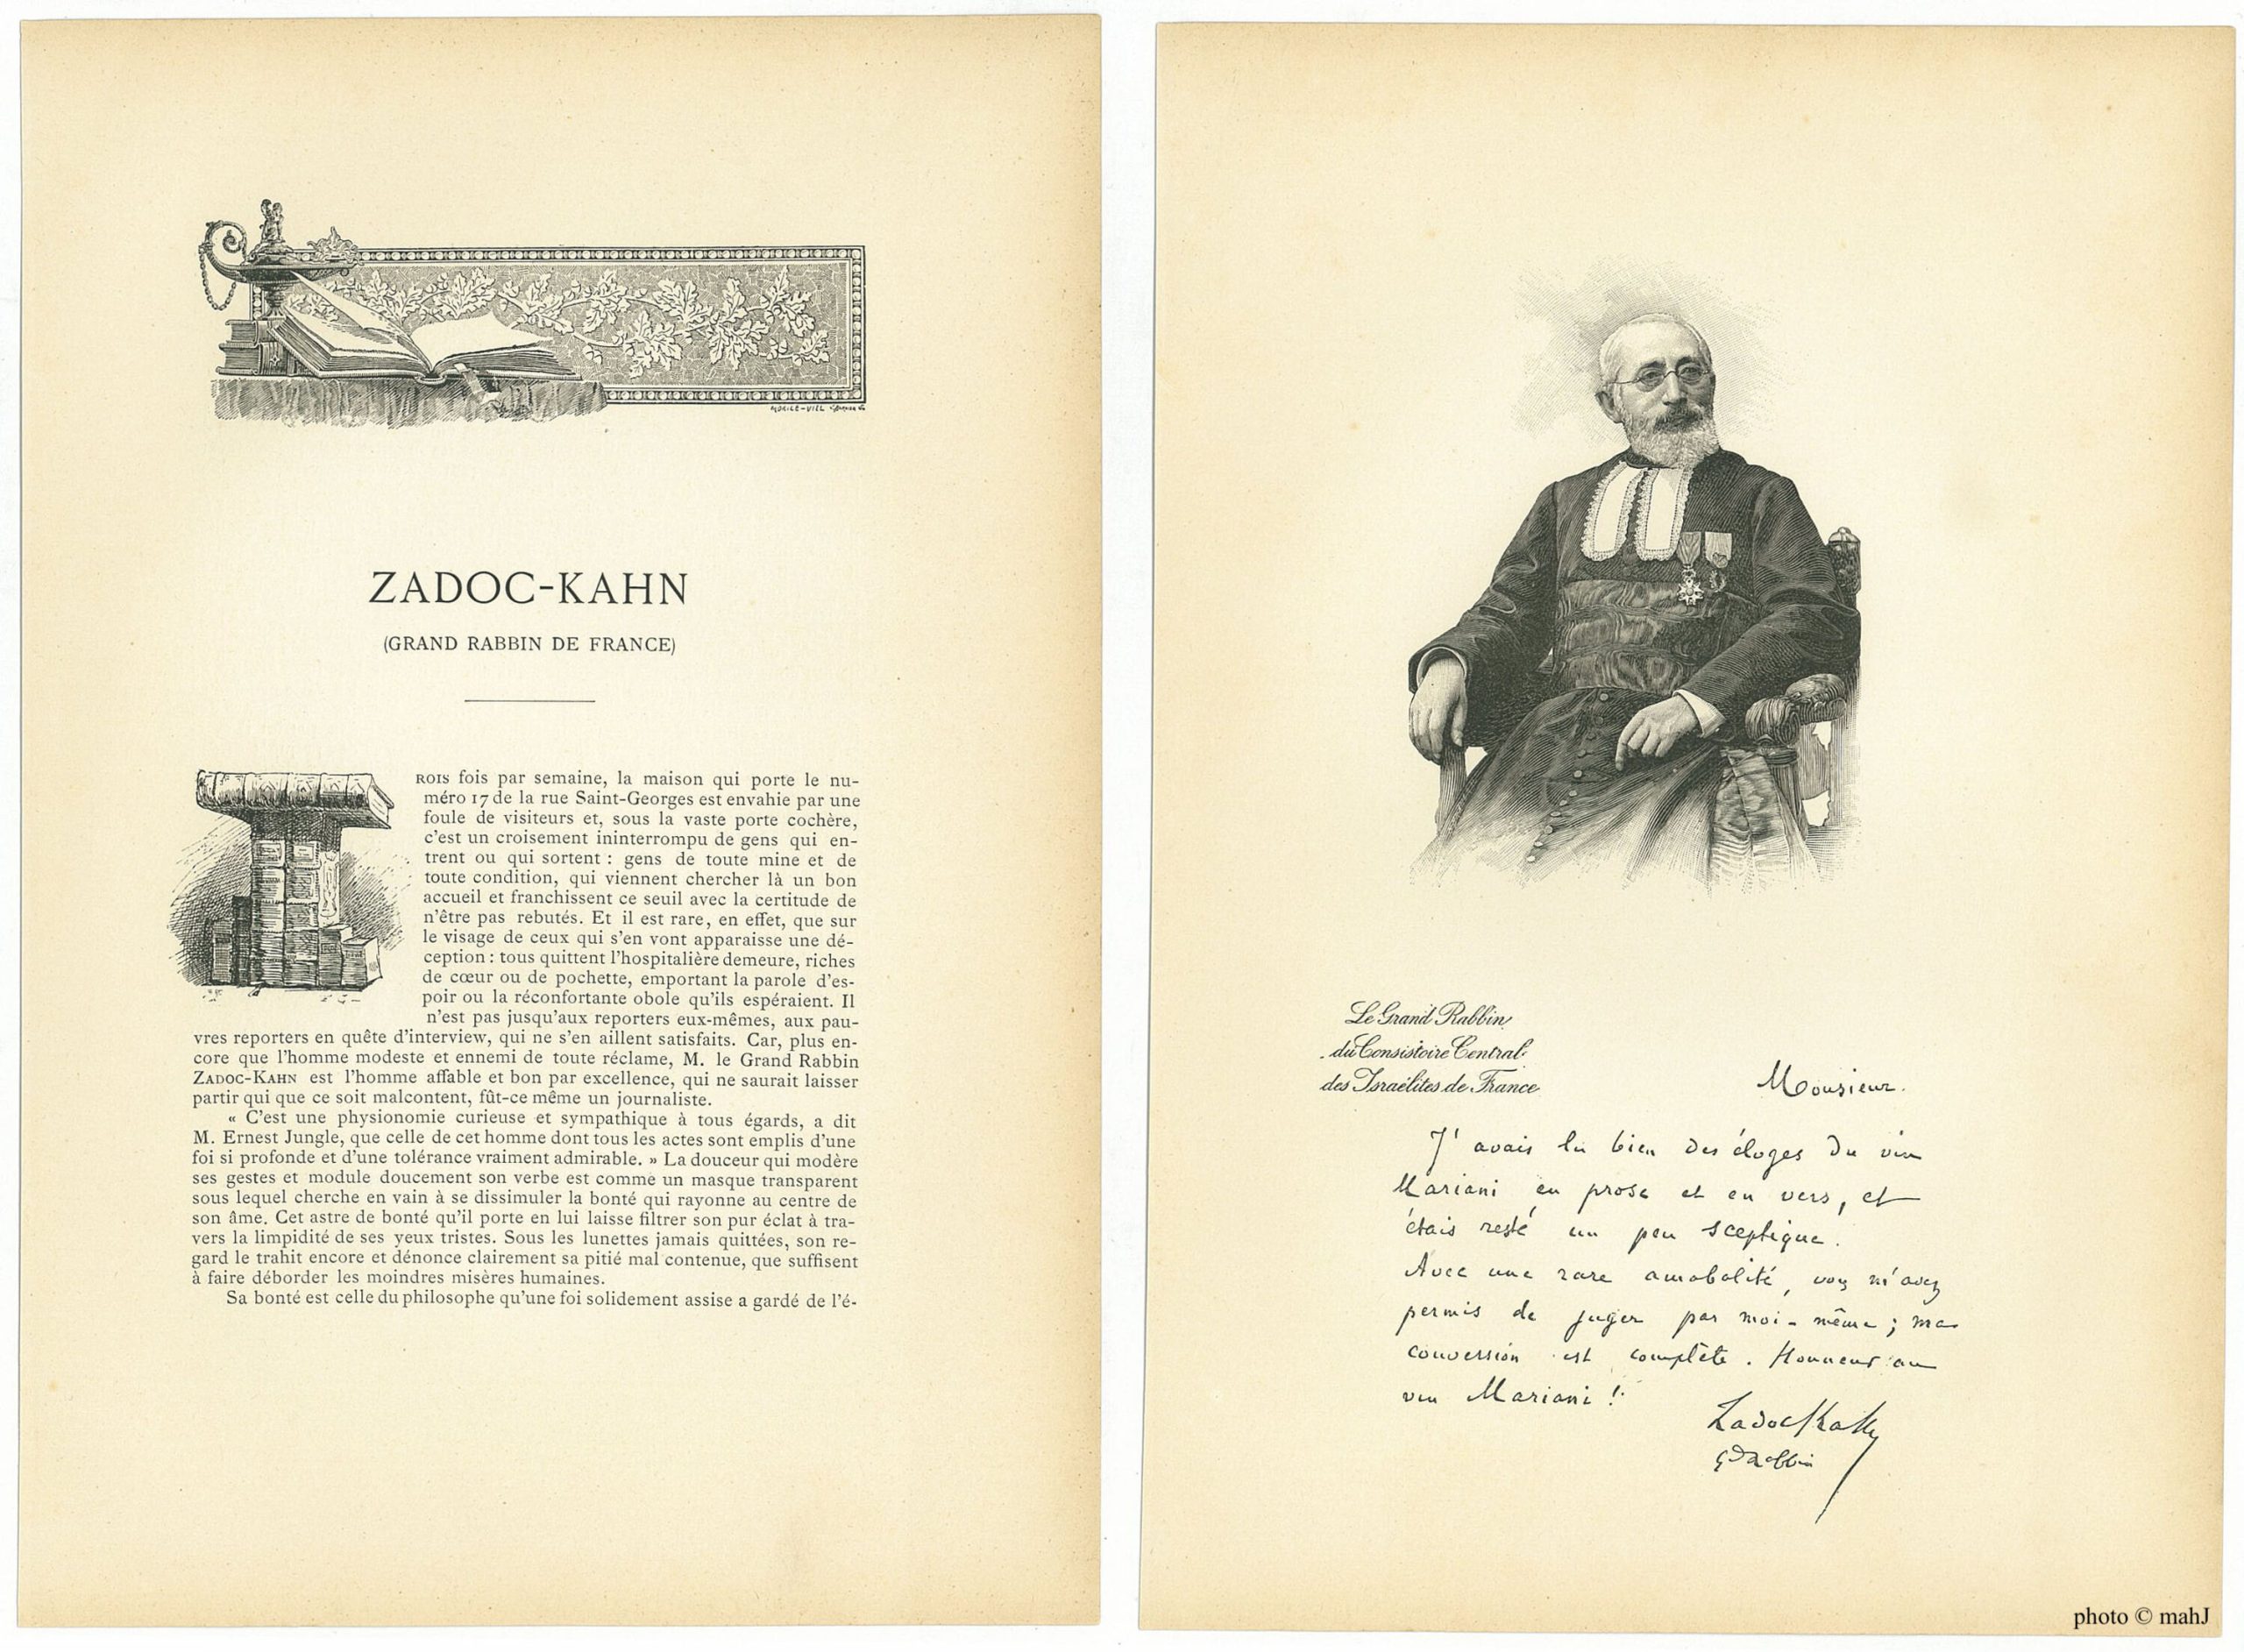 MORICE-VIEL
ZADOC-KAHN
(GRAND RABBIN DE FRANCE)
ROIS fois par semaine, la maison qui porte le nu-
méro 17 de la rue Saint-Georges est envahie par une
foule de visiteurs et, sous la vaste porte cochère,
c'est un croisement ininterrompu de gens qui en-
trent ou qui sortent : gens de toute mine et de
toute condition, qui viennent chercher là un bon
accueil et franchissent ce seuil avec la certitude de
n'être pas rebutés. Et il est rare, en effet, que sur
le visage de ceux qui s'en vont apparaisse une dé-
ception : tous quittent l'hospitalière demeure, riches
de cœur ou de pochette, emportant la parole d'es-
poir ou la réconfortante obole qu'ils espéraient. Il
n'est pas jusqu'aux reporters eux-mêmes, aux pau-
vres reporters en quête d'interview, qui ne s'en aillent satisfaits. Car, plus en-
core que l'homme modeste et ennemi de toute réclame, M. le Grand Rabbin
ZADOC-KAHN est l'homme affable et bon par excellence, qui ne saurait laisser
partir qui que ce soit malcontent, fût-ce même un journaliste.
« C'est une physionomie curieuse et sympathique à tous égards, a dit
M. Ernest Jungle, que celle de cet homme dont tous les actes sont emplis d'une
foi si profonde et d'une tolérance vraiment admirable. » La douceur qui modère
ses gestes et module doucement son verbe est comme un masque transparent
sous lequel cherche en vain à se dissimuler la bonté qui rayonne au centre de
son âme. Cet astre de bonté qu'il porte en lui laisse filtrer son pur éclat à tra-
vers la limpidité de ses yeux tristes. Sous les lunettes jamais quittées, son re-
gard le trahit encore et dénonce clairement sa pitié mal contenue, que suffisent
à faire déborder les moindres misères humaines.
Sa bonté est celle du philosophe qu'une foi solidement assise a gardé de l'é-
Le Grand Rabbin
du Consistoire Central
des Israélites de France
Monsieur.
J'avais lu bien des éloges du vin
Mariani en prose et en vers, et
étais resté un peu sceptique.
Avec une rare amabilité, vous m'avez
permis de juger par moi-même ; ma
conversion est complète. Honneur au
vin Mariani !
Zadoc Kahn
Gd Rabbin
photo © mahJ